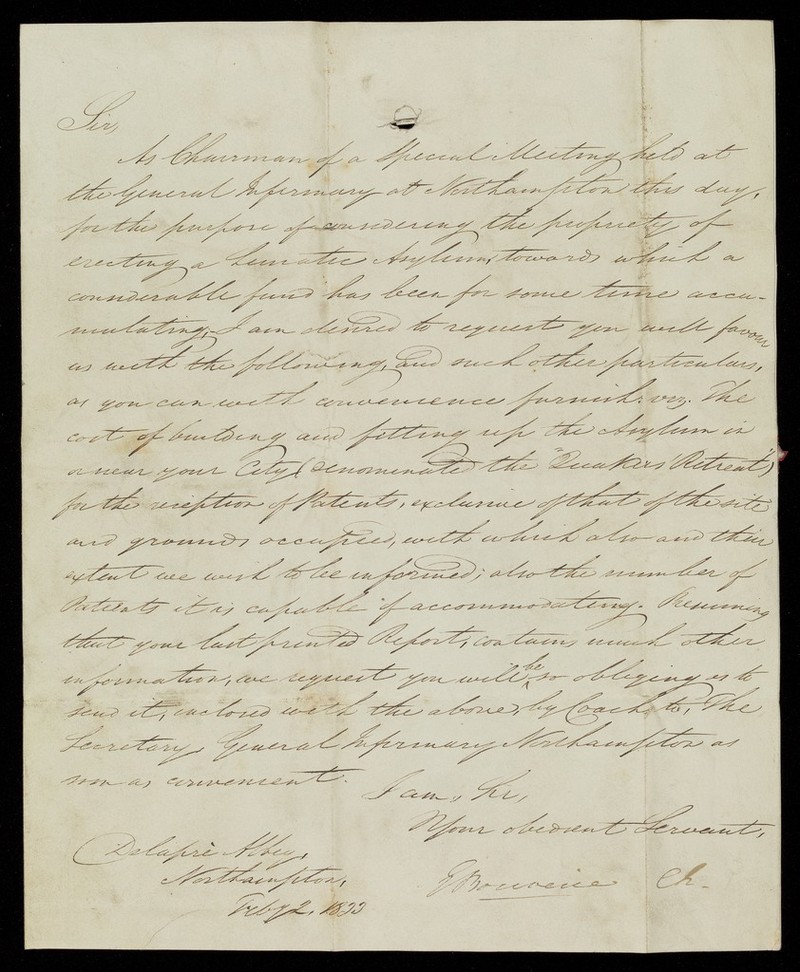 Sir,
As Chairman of a Special Meeting held at
the General Infirmary at Northampton this day,
for the purpose of considering the propriety of
erecting a Lunatic Asylum, towards which a
considerable fund has been for some time accu-
mulating, I am desired to request you will favour
us with the following, and such other particulars,
as you can with convenience furnish viz. The
cost of building and fitting up the Asylum in
or near your City (denominated the "Quakers' Retreat")
for the reception of Patients, exclusive of that of the site
and grounds occupied, with which also and their
extent we wish to be informed; also the number of
Patients it is capable of accommodating. Presuming
that your last printed Report, contains much other
information, we request you will be so obliging as to
send it, inclosed with the above, by Coach to, The
Secretary General Infirmary Northampton as
soon as convenient.
I am, Sir,
Your obedient Servant,
E Bouverie Ch.
Delapré Abbey,
Northampton,
Feby 2, 1833